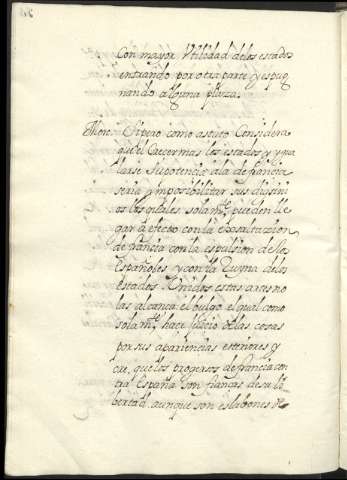 Con mayor Vtilidad delos estados
entrando por otra parte y espug
nando alguna plaza.
Monc. Pero como astuto Considera
que el Crecer mas los estados y ygua
larse su potencia ala de francia
seria ymposibilitar sus disini
os los quales solam.te pueden lle
gar a efecto con la Exsaltacion
de francia con la espulsion de los
Españoles y con la Ruyna delos
estados Unidos estas a[...] no
las alcança el bulgo el qual como
solam.te hace juicio de las cosas
por sus apariencias esteriores y
cre, que los progresos de francia con
tra España son fianças de su li
bertad aunque son eslabones de